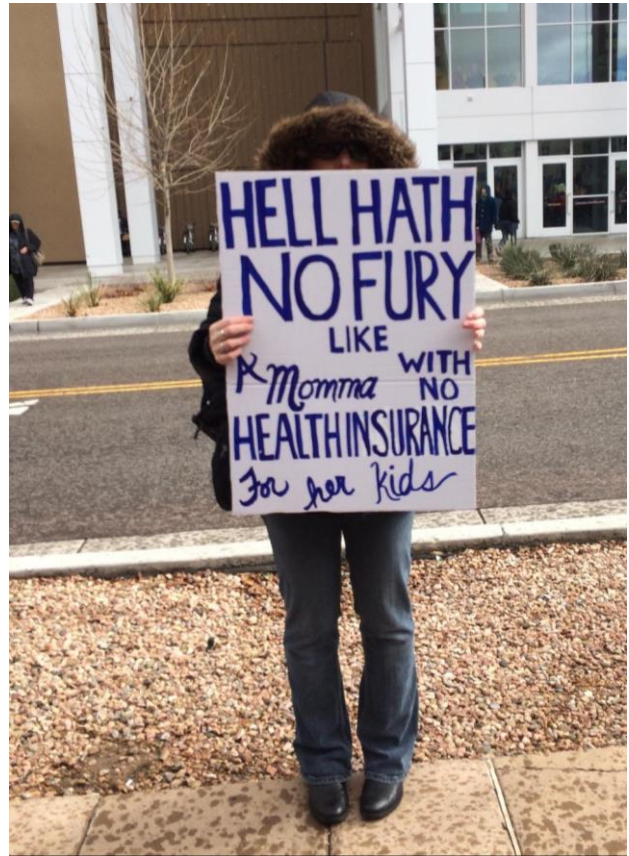 HELL HATH
NO FURY
LIKE
A Momma WITH NO
HEALTH INSURANCE
For her Kids